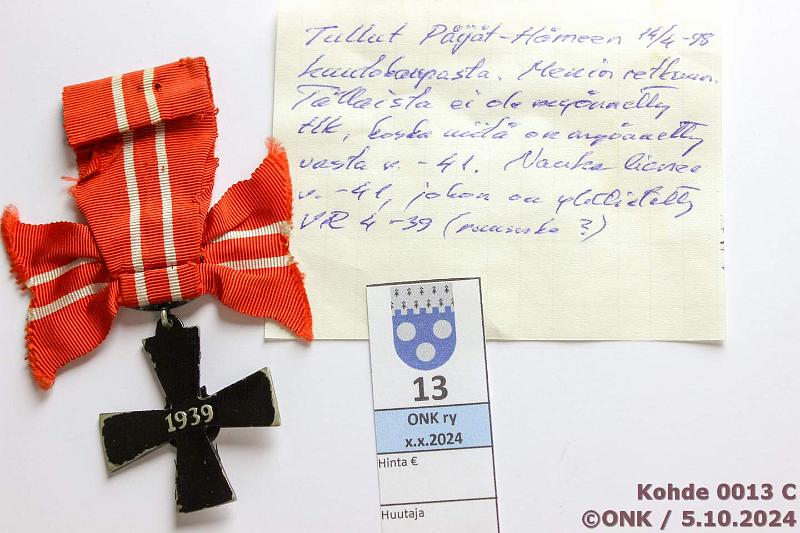 Tullut Päijät-Hämeen 14/4 -98
kuutokaupasta. Menin retkuun.
Tällaista ei ole myönnetty
kk, koska niitä on myönnetty
vasta v. -41. Nauha lienee
v. -41, johon on yhdistetty
VR 4 -39 (ruusuke ?)
1939
13
ONK ry
x.x.2024
Hinta €
Huutaja
Kohde 0013 C
©ONK / 5.10.2024